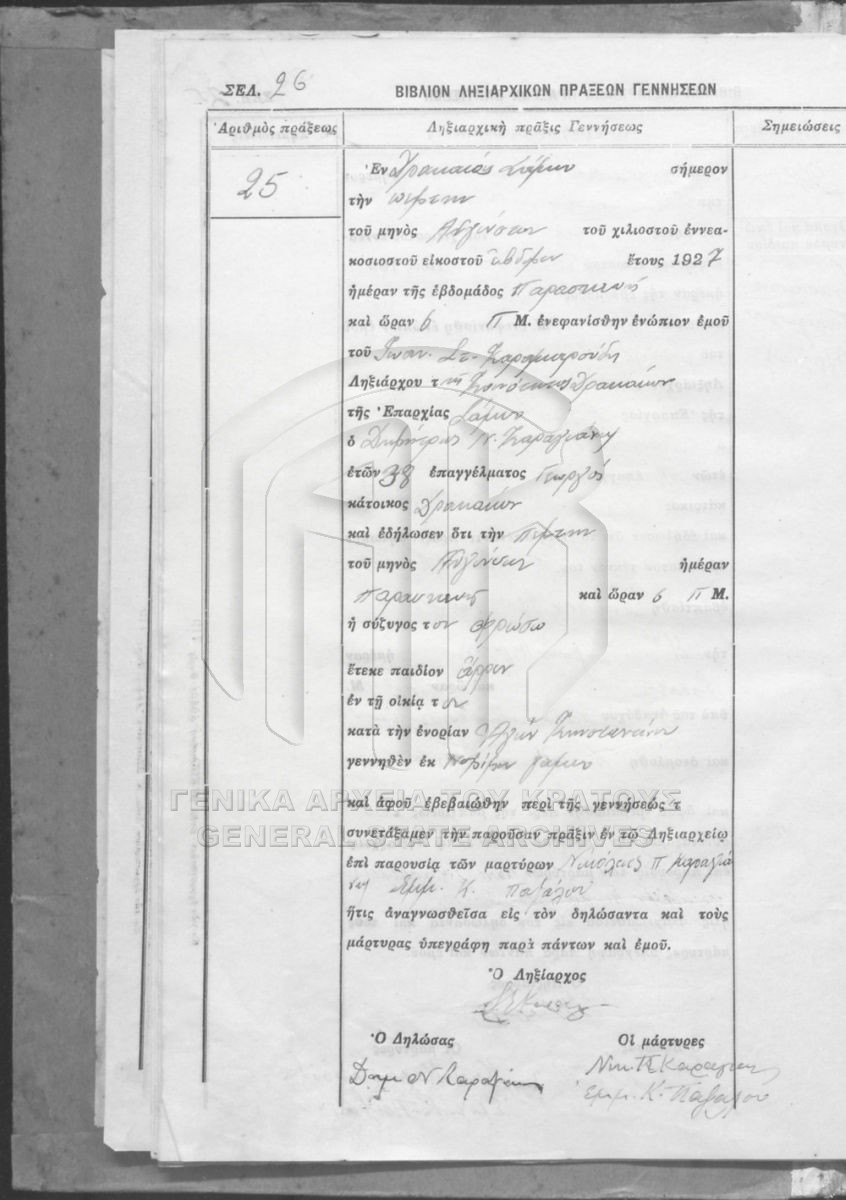 ΣΕΛ. 26
ΒΙΒΛΙΟΝ ΛΗΞΙΑΡΧΙΚΩΝ ΠΡΑΞΕΩΝ ΓΕΝΝΗΣΕΩΝ
Ἀριθμὸς πράξεως
Ληξιαρχικὴ πρᾶξις Γεννήσεως
Σημειώσεις
25
Ἐν Δρακαίοις Σάμου σήμερον
τὴν πέμπτην
τοῦ μηνὸς Αὐγούστου τοῦ χιλιοστοῦ ἐννεα-
κοσιοστοῦ εἰκοστοῦ ἑβδόμου ἔτους 1927
ἡμέραν τῆς ἑβδομάδος Παρασκευὴ
καὶ ὥραν 6 Π Μ. ἐνεφανίσθην ἐνώπιον ἐμοῦ
τοῦ Ἰωαν. Στ.
Ληξιάρχου τῆς Κοινότητος Δρακαίων
τῆς Ἐπαρχίας Σάμου
ὁ Δημήτριος Ν. Καραγιάννης
ἐτῶν 38 ἐπαγγέλματος Γεωργὸς
κάτοικος Δρακαίων
καὶ ἐδήλωσεν ὅτι τὴν πέμπτην
τοῦ μηνὸς Αὐγούστου ἡμέραν
Παρασκευὴ καὶ ὥραν 6 Π Μ.
ἡ σύζυγος του Φρόσω
ἔτεκε παιδίον ἄρρεν
ἐν τῇ οἰκίᾳ του
κατὰ τὴν ἐνορίαν Ἁγίου Κωνσταντίνου
γεννηθὲν ἐκ νομίμου γάμου
ΓΕΝΙΚΑ ΑΡΧΕΙΑ ΤΟΥ ΚΡΑΤΟΥΣ
καὶ ἀφοῦ ἐβεβαιώθην περὶ τῆς γεννήσεώς τ
GENERAL STATE ARCHIVES
συνετάξαμεν τὴν παροῦσαν πρᾶξιν ἐν τῷ Ληξιαρχείῳ
ἐπὶ παρουσίᾳ τῶν μαρτύρων Νικόλαος Π Καραγιά
νης Ἐμμ. Κ.
ἥτις ἀναγνωσθεῖσα εἰς τὸν δηλώσαντα καὶ τοὺς
μάρτυρας ὑπεγράφη παρὰ πάντων καὶ ἐμοῦ.
Ὁ Ληξίαρχος
Ὁ Δηλώσας
Οἱ μάρτυρες
Δημ Ν Καραγιάν
Νικ. Π Καραγιαν
Ἐμμ. Κ.